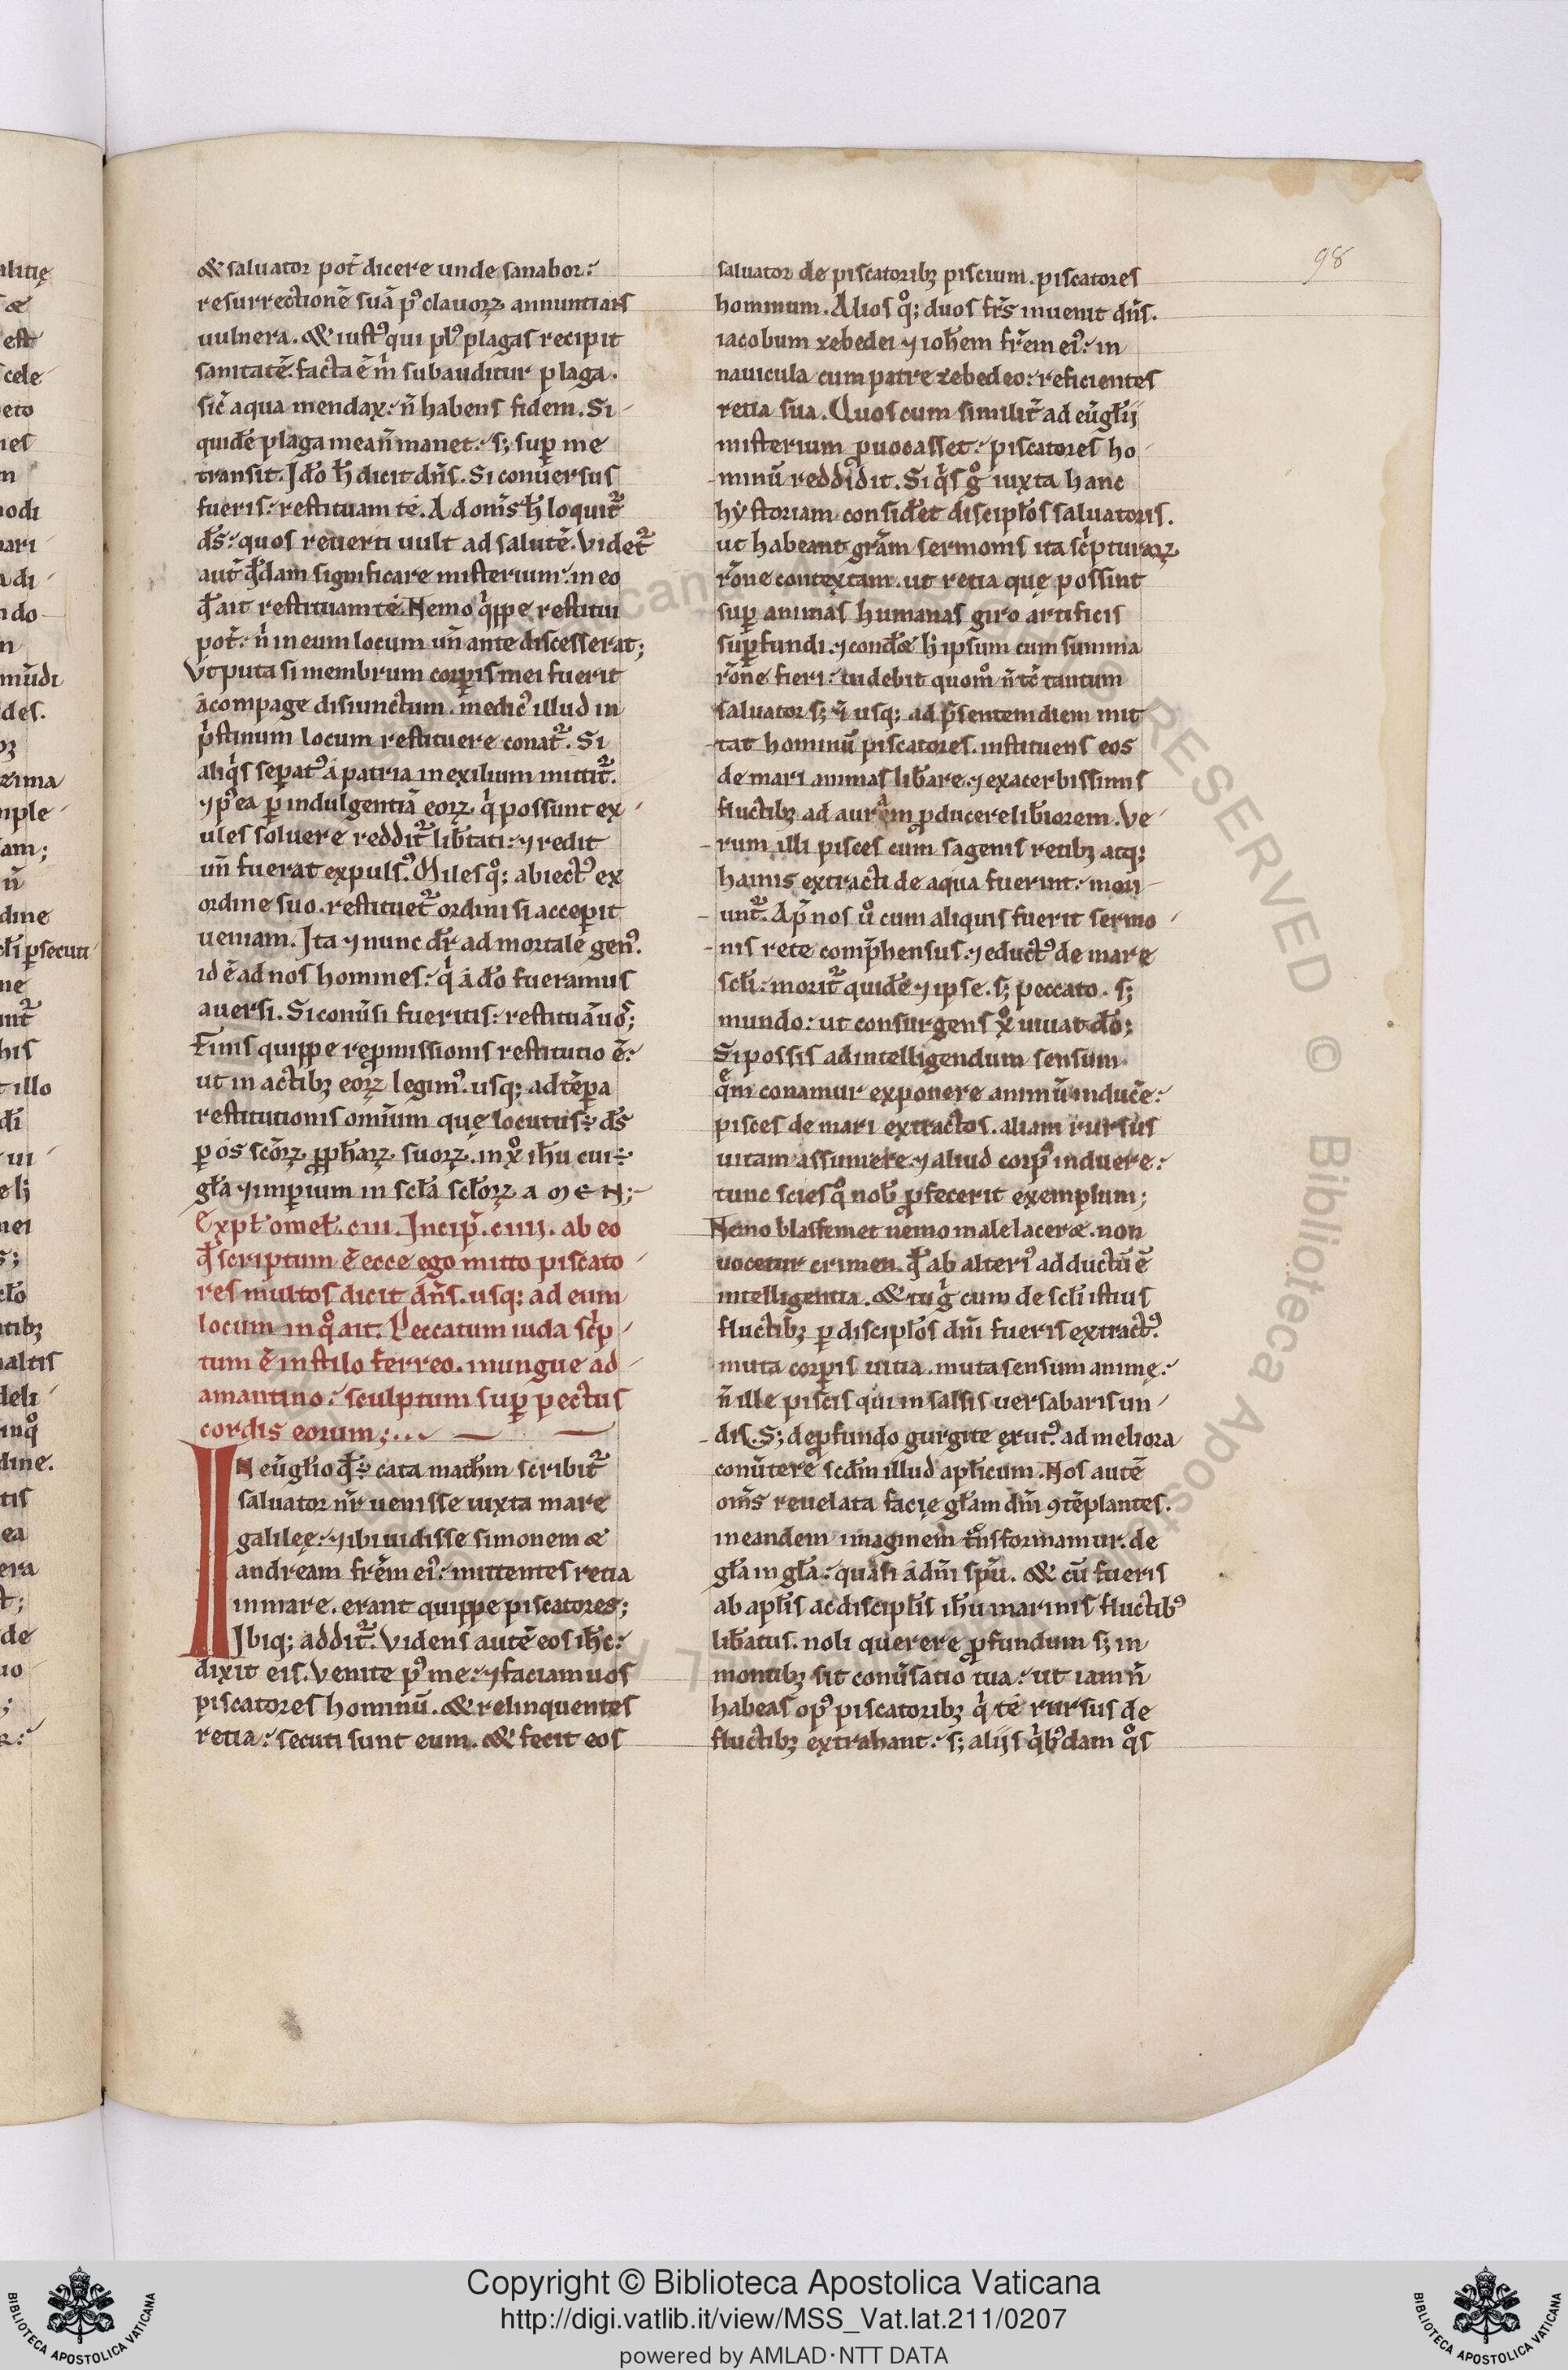 98
& saluator pot̄ dicere unde sanabor:
resurrectionē suā pꝰ clauoꝝ annuntians
uulnera. & iustꝰ qui plꝰ plagas recipit
sanitatē. facta ē m̄ subauditur plaga.
sic̄ aqua mendax: n̄ habens fidem. Si
quidē plaga mea n̄ manet: sꝫ suꝑ me
transit. Ido̅ h̄ dicit dn̄s. Si conuersus
fueris: restituam té. Ad oms̄ h̄ loquit᷑
ds̄: quos reuerti uult ad salutē. Videt᷑
aut̄ qd̄dam significare misterium: in eo
qd̄ ait restituam té. Nemo qͥppe restitui
pot̄: n̄ in eum locum un̄ ante discesserat;
Vt puta si membrum corꝑis mei fuerit
á compage disiunctum. medicꝰ illud in
pͥstinum locum restituere conat᷑. Si
aliqͥs seꝑatꝰ á patria in exilium mittit᷑.
⁊ pꝰea ꝑ indulgentiā eoꝝ qͥ possunt ex
ules soluere reddit᷑ lib̄tati: ⁊ redit
un̄ fuerat expulsꝰ. Miles qͦꝫ abiectꝰ ex
ordine suo. restituet᷑ ordini si acceꝑit
ueniam. Ita ⁊ nunc dr̄ ad mortale genꝰ.
id ē ad nos homines: qͥ á do̅ fueramus
auersi. Si conūsi fueritis: restituā uos;
Finis quippe reꝓmissionis restitutio ē:
ut in actibꝫ eoꝝ legimꝰ. usqꝫ ad tēꝑa
restitutionis omīum quę locutus ÷ ds̄
ꝑ os sc̄oꝝ ꝓph̄aꝝ suoꝝ. in xͦ ih̄u cui ÷
gl̄a ⁊ imꝑium in scl̄a scl̄oꝝ AMEN;
Expl̄ omel̄. ciii. Incip̄. ciiii. ab eo
qd̄ scriptum ē ecce ego mitto piscato
res multos dicit dn̄s. usqꝫ ad eum
locum in qͦ ait. Peccatum iuda scͥp
tum ē in stilo ferreo. in ungue ad
amantino: sculptum suꝑ pectus
cordis eorum;
IN eūgl̄io qd̄ ÷ cata math̄m scribit᷑
saluator nr̄ uenisse iuxta mare
galilęę: ⁊ ibi uidisse simonem &
andream fr̄em eiꝰ: mittentes retia
in mare. erant quippe piscatores;
Ibiqꝫ addit᷑. Videns autē eos ih̄c:
dixit eis. Venite pꝰ me: ⁊ faciam uos
piscatores hominū. & relinquentes
retia: secuti sunt eum. & fecit eos
saluator de piscatoribꝫ piscium. piscatores
hominum. Alios qͦꝫ duos fr̄s inuenit dn̄s.
iacobum zebedei ⁊ ioh̄em fr̄em eiꝰ: in
nauicula cum patre zebedeo: reficientes
retia sua. Quos cum similit̄ ad eūgl̄ij
misterium ꝓuocasset: piscatores ho
minū reddidit. Si qͥs gͦ iuxta hanc
hẏstoriam consid̄et discipl̄os saluatoris.
ut habeant gr̄am sermonis ita scͥpturaꝝ
rōne contextam. ut retia quę possint
suꝑ animas humanas giro artificis
suꝑfundi. ⁊ cond̄& h̄ ipsum cum summa
rōne fieri: uidebit quom̊ n̄ tc̄ tantum
saluator sꝫ ⁊ usqꝫ ad p̄sentem diem mit
tat hominū piscatores. instituens eos
de mari animas lib̄are. ⁊ ex acerbissimis
fluctibꝫ ad aurām ꝓducere lib̄iorem. Ve
rum illi pisces cum sagenis retibꝫ atqꝫ
hamis extracti de aqua fuerint: mori
unt᷑. Ap̄ nos uͦ cum aliquis fuerit sermo
nis rete comp̄hensus. ⁊ eductꝰ de mare
scl̄i: morit᷑ quidē ⁊ ipse. sꝫ peccato. sꝫ
mundo: ut consurgens xͦ uiuat do̅;
Si possis ad intelligendum sensum
quem conamur exponere animū inducē:
pisces de mari extractos. aliam rursus
uitam assumere. ⁊ aliud corpꝰ induere:
tunc scies qͦ nob̄ ꝓfecerit exemplum;
Nemo blasfemet nemo male lacer&. non
uocetur crimen. qd̄ ab alteriꝰ adductū ē
intelligentia. & tu gͦ cum de scl̄i istius
fluctibꝫ ꝑ discipl̄os dn̄i fueris extractꝰ.
muta corꝑis uitia. muta sensum animę:
n̄ ille piscis qui in salsis uersabaris un
dis. Sꝫ de ꝓfundo gurgite ęrutꝰ. ad meliora
conūtere scd̄m illud apl̄icum. Nos autē
oms̄ reuelata facię gl̄am dn̄i ꝯtēplantes.
in eandem imaginem tͣnsformamur. de
gl̄a in gl̄a: quasi á dn̄i spū. & cū fueris
ab apl̄is ac discipl̄is ih̄u marinis fluctibꝰ
lib̄atus. noli querere ꝓfundum sꝫ in
montibꝫ sit conūsatio tua: ut iam n̄
habeas opꝰ piscatoribꝫ qͥ té rursus de
fluctibꝫ extrahant: sꝫ alijs qͥbꝰdam qͦs
Copyright © Biblioteca Apostolica Vaticana
http://digi.vatlib.it/view/MSS_Vat.lat.211/0207
powered by AMLAD·NTT DATA
BIBLIOTECA APOSTOLICA VATICANA
BIBLIOTECA APOSTOLICA VATICANA